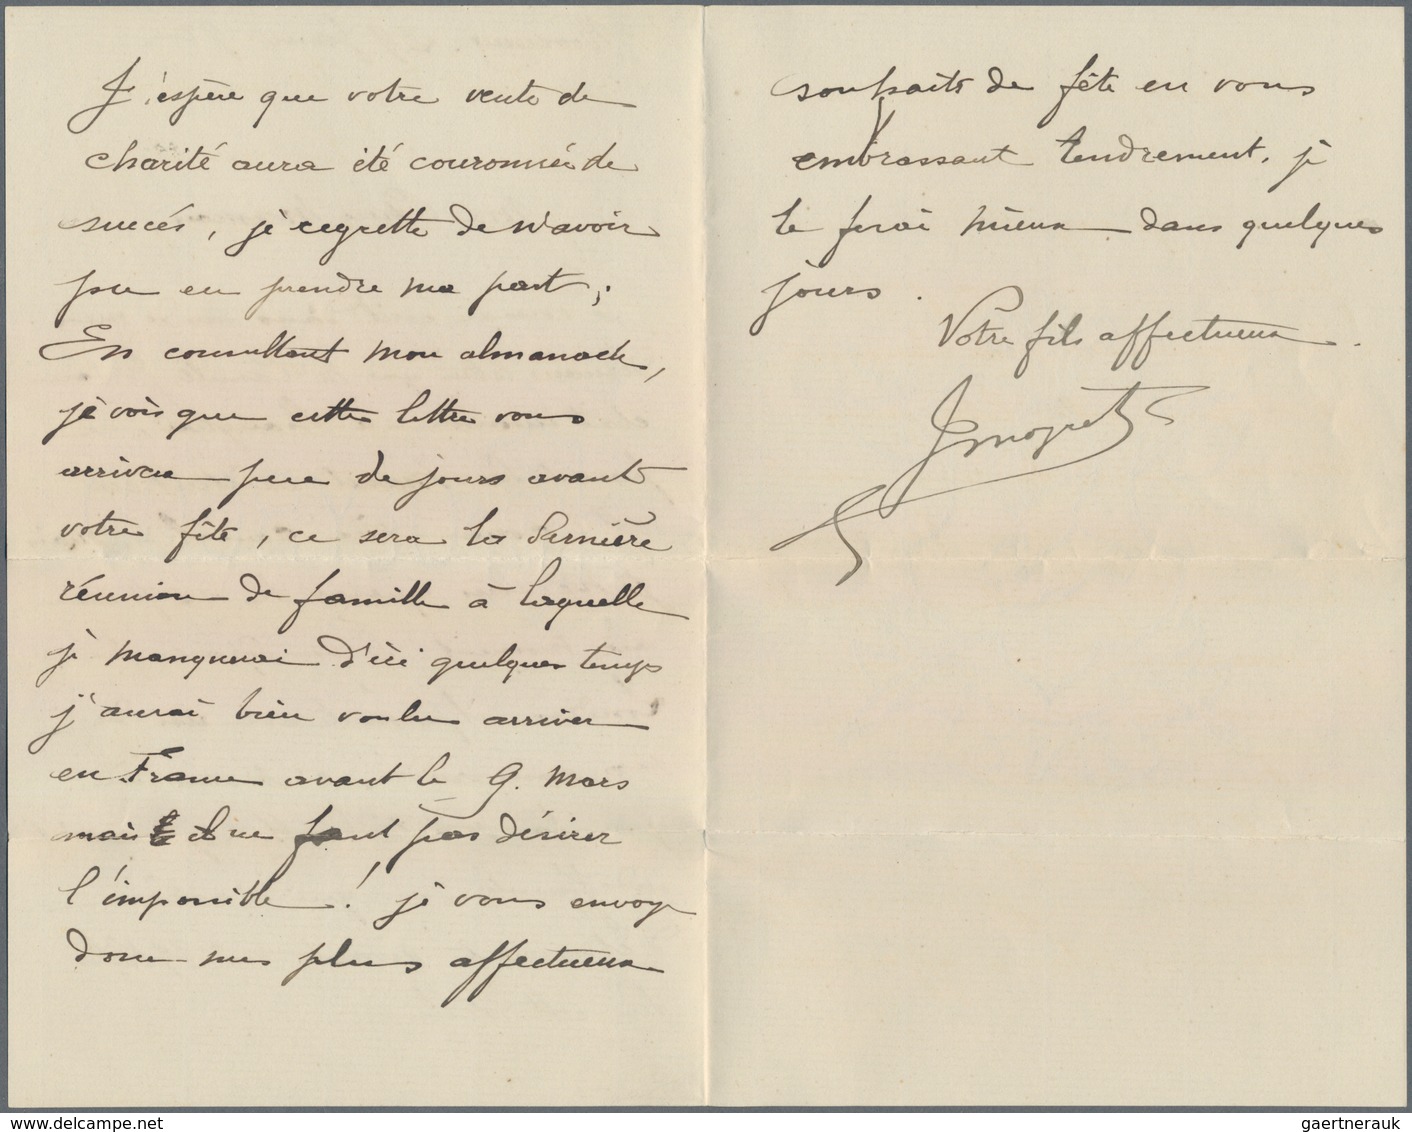 J'espère que votre vente de
charité aura été couronnée de
succés, je regrette de n'avoir
pu en prendre ma part,
En consultant mon almanach,
je vois que cette lettre vous
arrivera peu de jours avant
votre fête, ce sera la dernière
réunion de famille à laquelle
je manquerai d'ici quelques temps
j'aurai bien voulu arriver
en France avant le 9. Mars
mais il ne faut pas désirer
l'impossible ! je vous envoye
donc mes plus affectueux
souhaits de fête en vous
embrassant tendrement, je
le ferai mieux dans quelques
jours.
Votre fils affectueux.
www.delcampe.net
gaertnerauk